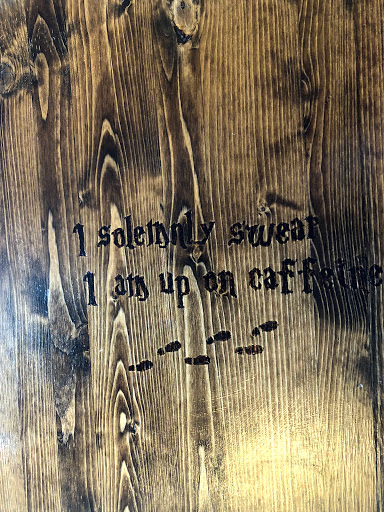 I solemnly swear
I am up on caffeine